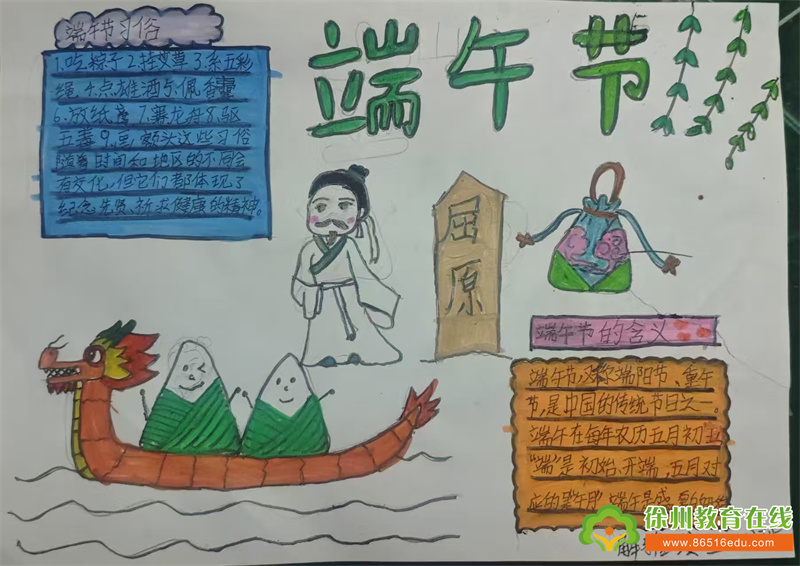 端午节
端午节习俗
1.吃粽子2.挂艾草3.系五彩
绳4.点雄酒5.佩香囊
6.放纸鸢7.赛龙舟8.驱
五毒9.画额头这些习俗
随着时间和地区的不同会
有变化,但它们都体现了
纪念先贤、祈求健康的精神。
屈原
端午节的含义
端午节,又称端阳节、重午
节,是中国的传统节日之一。
端午在每年农历五月初五
"端"是初始、开端,五月对
应的是"午月"端午是
徐州教育在线
www.86516edu.com